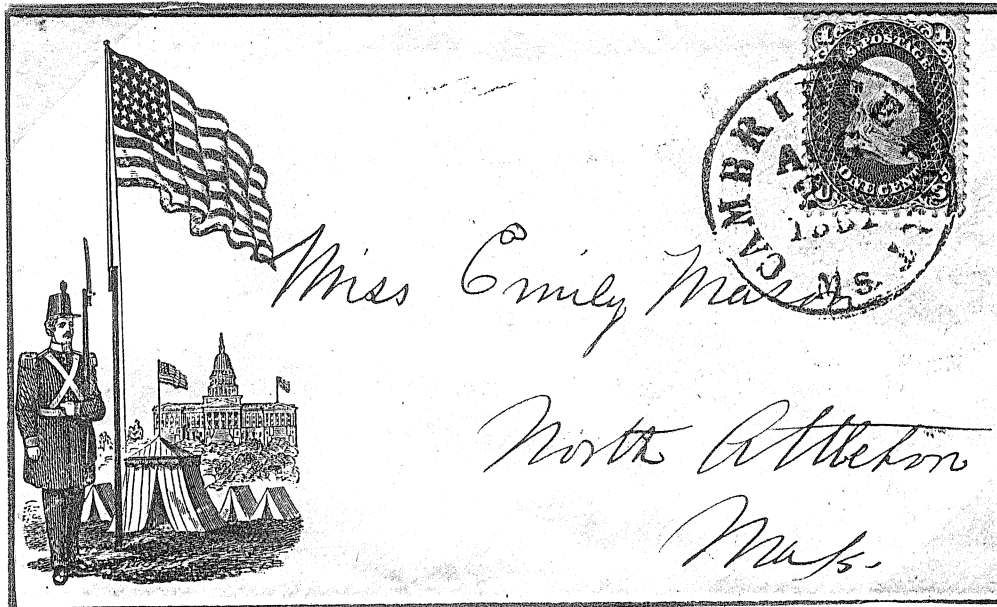 U.S. POSTAGE
ONE CENT
CAMBRI
MS.
Miss Emily Mason
North Attleboro
Mass.